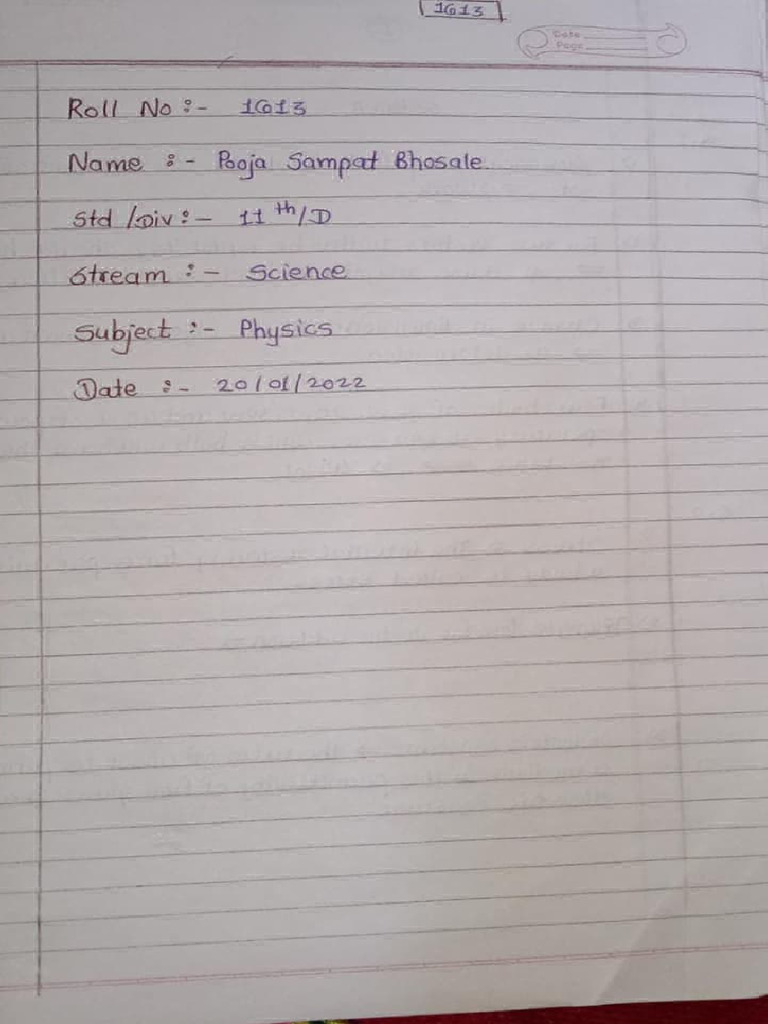 1613
Date
Page
Roll No :- 1613
Name :- Pooja Sampat Bhosale
Std /Div :- 11th/D
Stream :- Science
Subject :- Physics
Date :- 20/01/2022